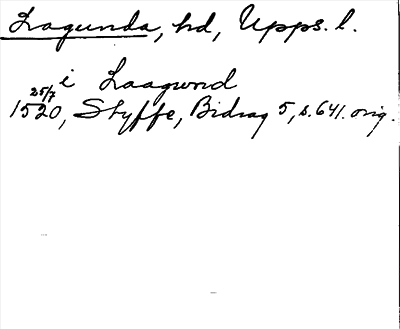 Lagunda, hd, Upps. l.
i Laagwnd
25/7
1520, Styffe, Bidrag 5, s. 641. orig.